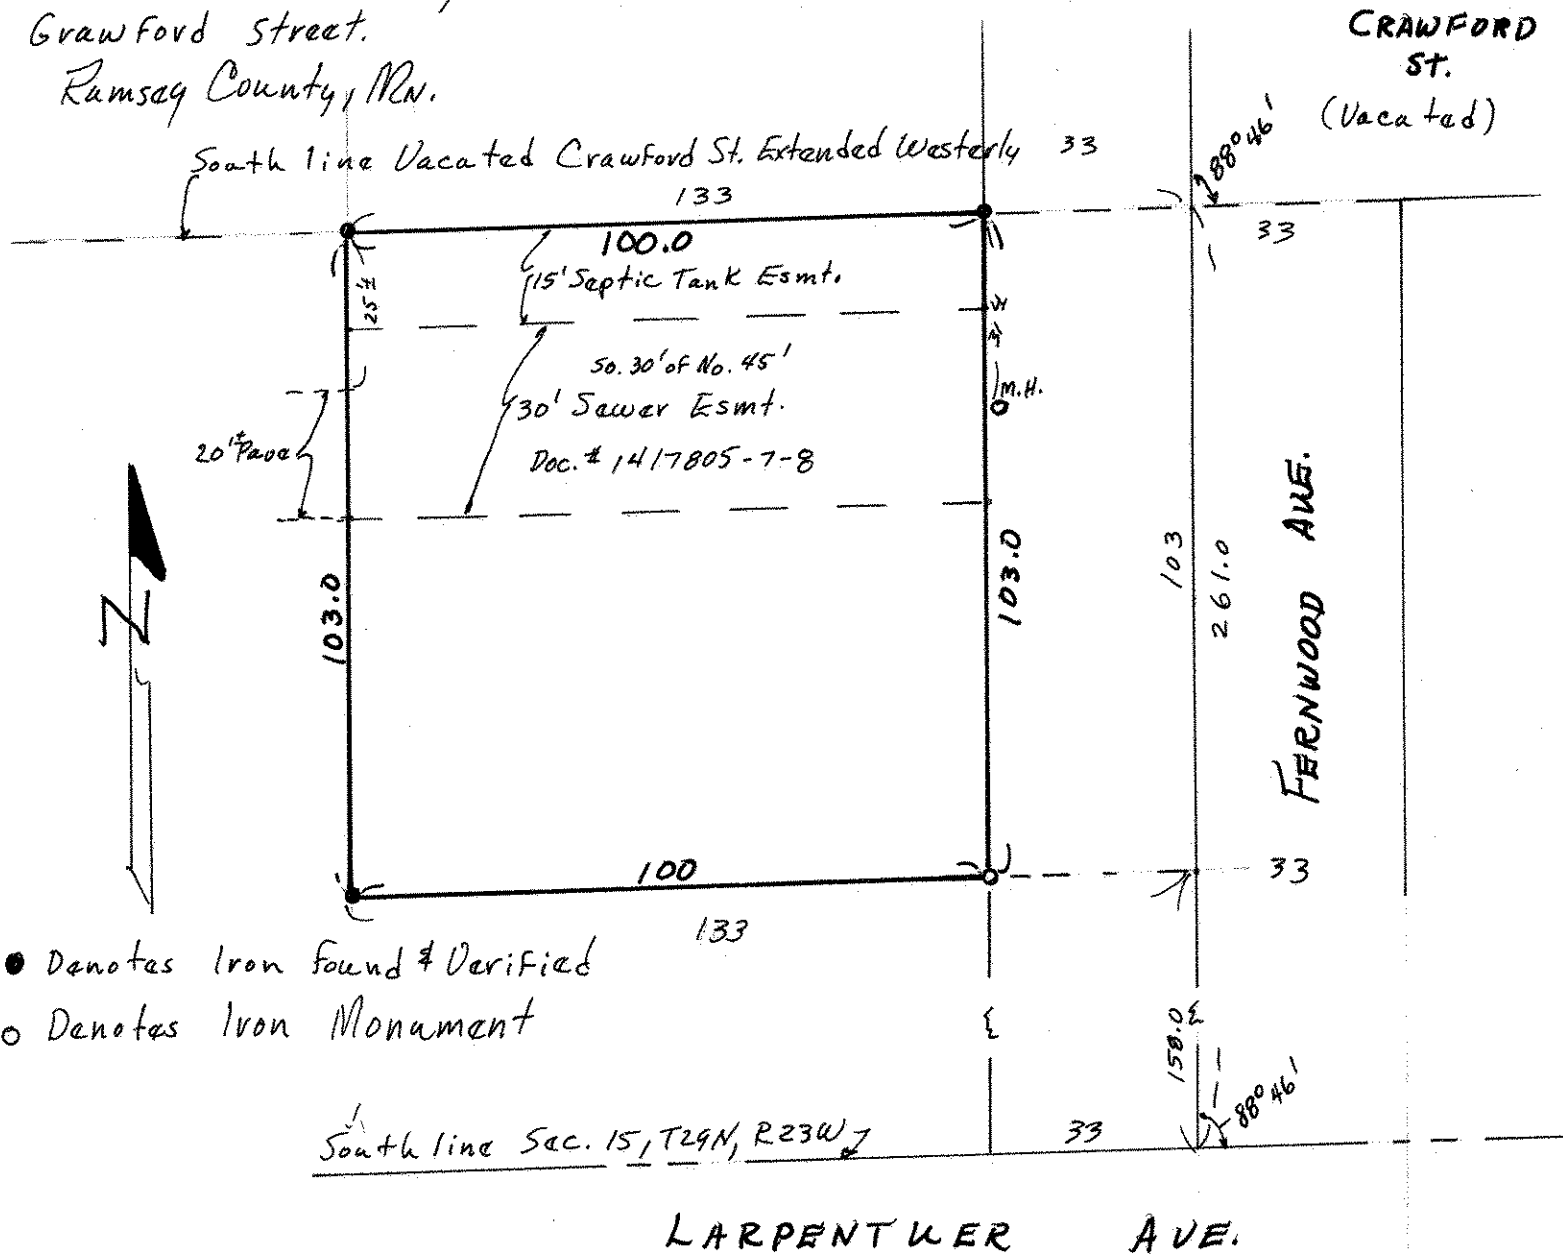 Grawford Street.
Ramsey County, MN.
CRAWFORD
ST.
(Vacated)
South line Vacated Crawford St. Extended Westerly
33
88°46'
133
33
100.0
15' Septic Tank Esmt.
25'±
So. 30' of No. 45'
30' Sewer Esmt.
M.H.
20'± Pave
Doc. # 1417805-7-8
N
103.0
103.0
103
261.0
FERNWOOD AVE.
100
33
133
● Denotes Iron found & Verified
○ Denotes Iron Monument
158.0
88°46'
South line Sec. 15, T29N, R23W
33
LARPENTUER AVE.